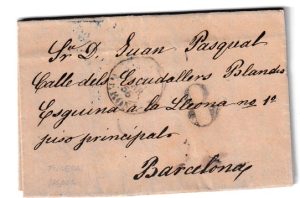 Sr. D. Juan Pasqual
Calle dels Escudallers Blanchs
Esquina a la Lleona no 1º
piso principal
Barcelona
8